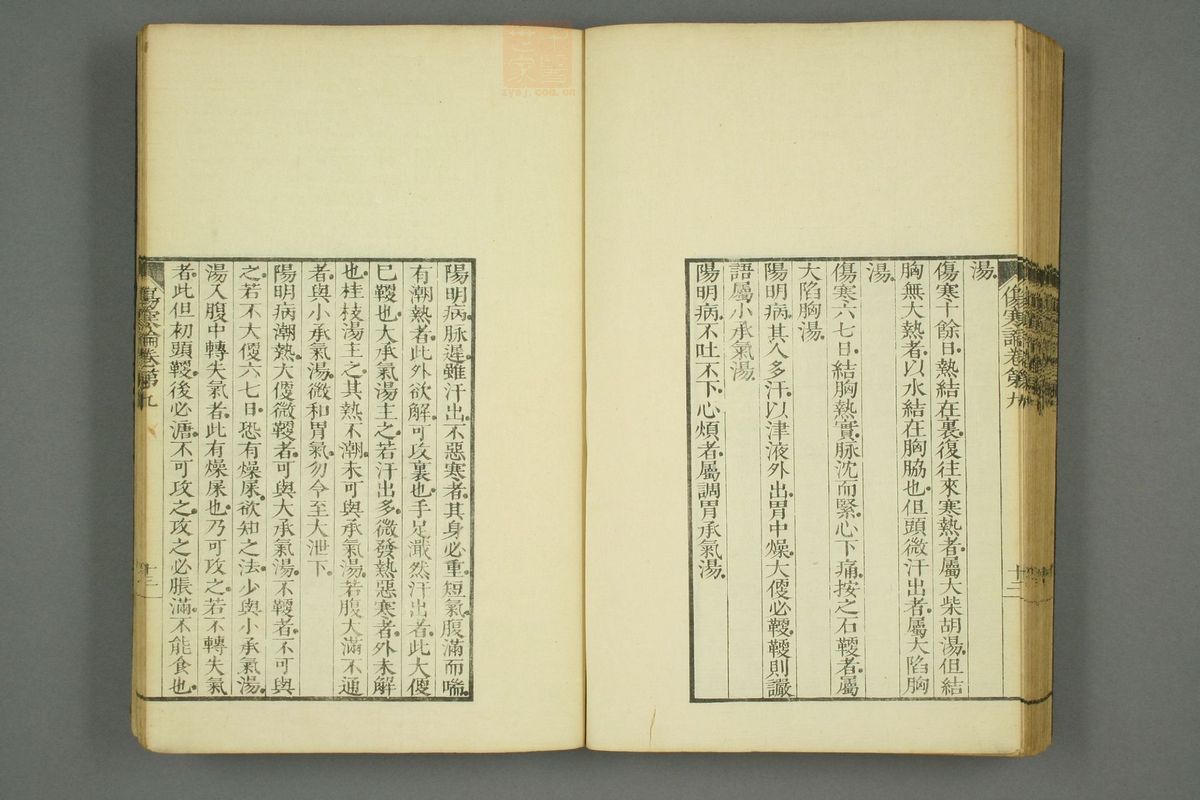 湯
傷寒十餘日熱結在裏復往來寒熱者屬大柴胡湯但結
胸無大熱者以水結在胸脇也但頭微汗出者屬大陷胸
湯
傷寒六七日結胸熱實脉沈而緊心下痛按之石鞕者屬
大陷胸湯
陽明病其人多汗以津液外出胃中燥大便必鞕鞕則讝
語屬小承氣湯
陽明病不吐不下心煩者屬調胃承氣湯
傷寒論卷第九
十二
陽明病脉遲雖汗出不惡寒者其身必重短氣腹滿而喘
有潮熱者此外欲解可攻裏也手足濈然汗出者此大便
已鞕也大承氣湯主之若汗出多微發熱惡寒者外未解
也桂枝湯主之其熱不潮未可與承氣湯若腹大滿不通
者與小承氣湯微和胃氣勿令至大泄下
陽明病潮熱大便微鞕者可與大承氣湯不鞕者不可與
之若不大便六七日恐有燥屎欲知之法少與小承氣湯
湯入腹中轉失氣者此有燥屎也乃可攻之若不轉失氣
者此但初頭鞕後必溏不可攻之攻之必脹滿不能食也
傷寒論卷第九
十三
世家
zysj.com.cn